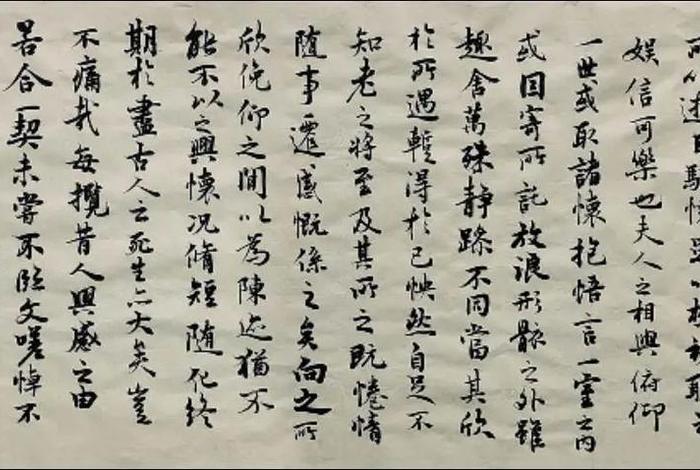 娛信可樂也夫人之相與俯仰
一世或取諸懷抱悟言一室之內
或因寄所託放浪形骸之外雖
趣舍萬殊靜躁不同當其欣
於所遇暫得於己怏然自足不
知老之將至及其所之既惓情
隨事遷感慨係之矣向之所
欣俛仰之間以為陳迹猶不
能不以之興懷況脩短隨化終
期於盡古人云死生亦大矣豈
不痛哉每攬昔人興感之由
若合一契未嘗不臨文嗟悼不